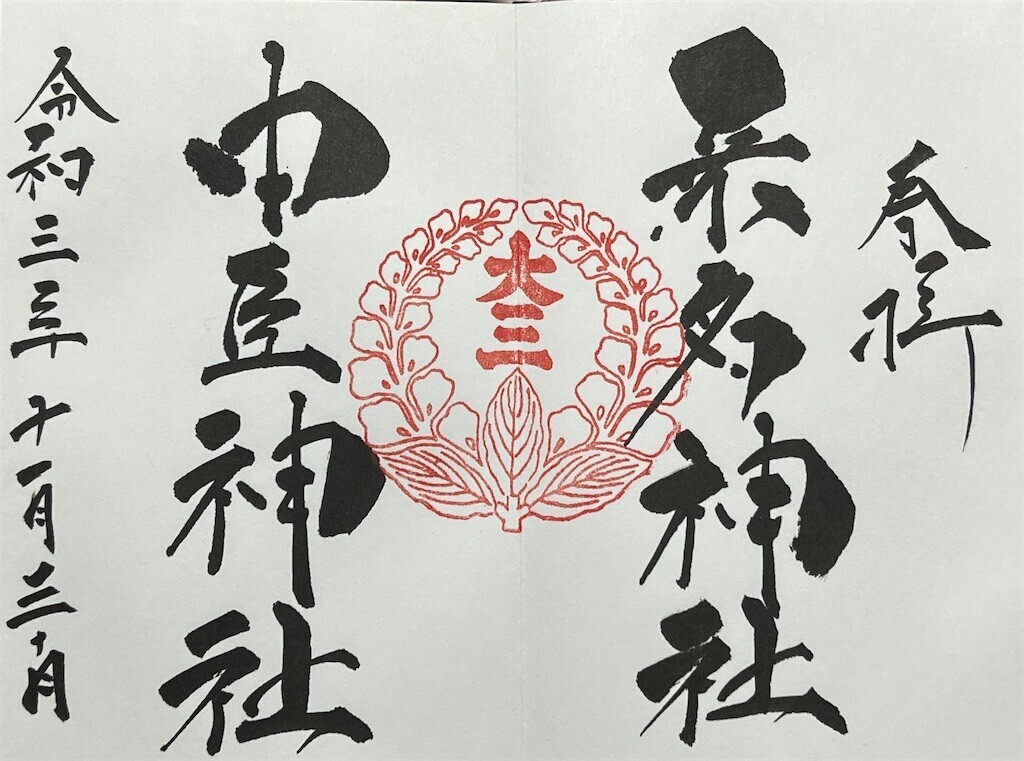 奉拝
桑名神社
大三
中臣神社
令和三年十一月三十日